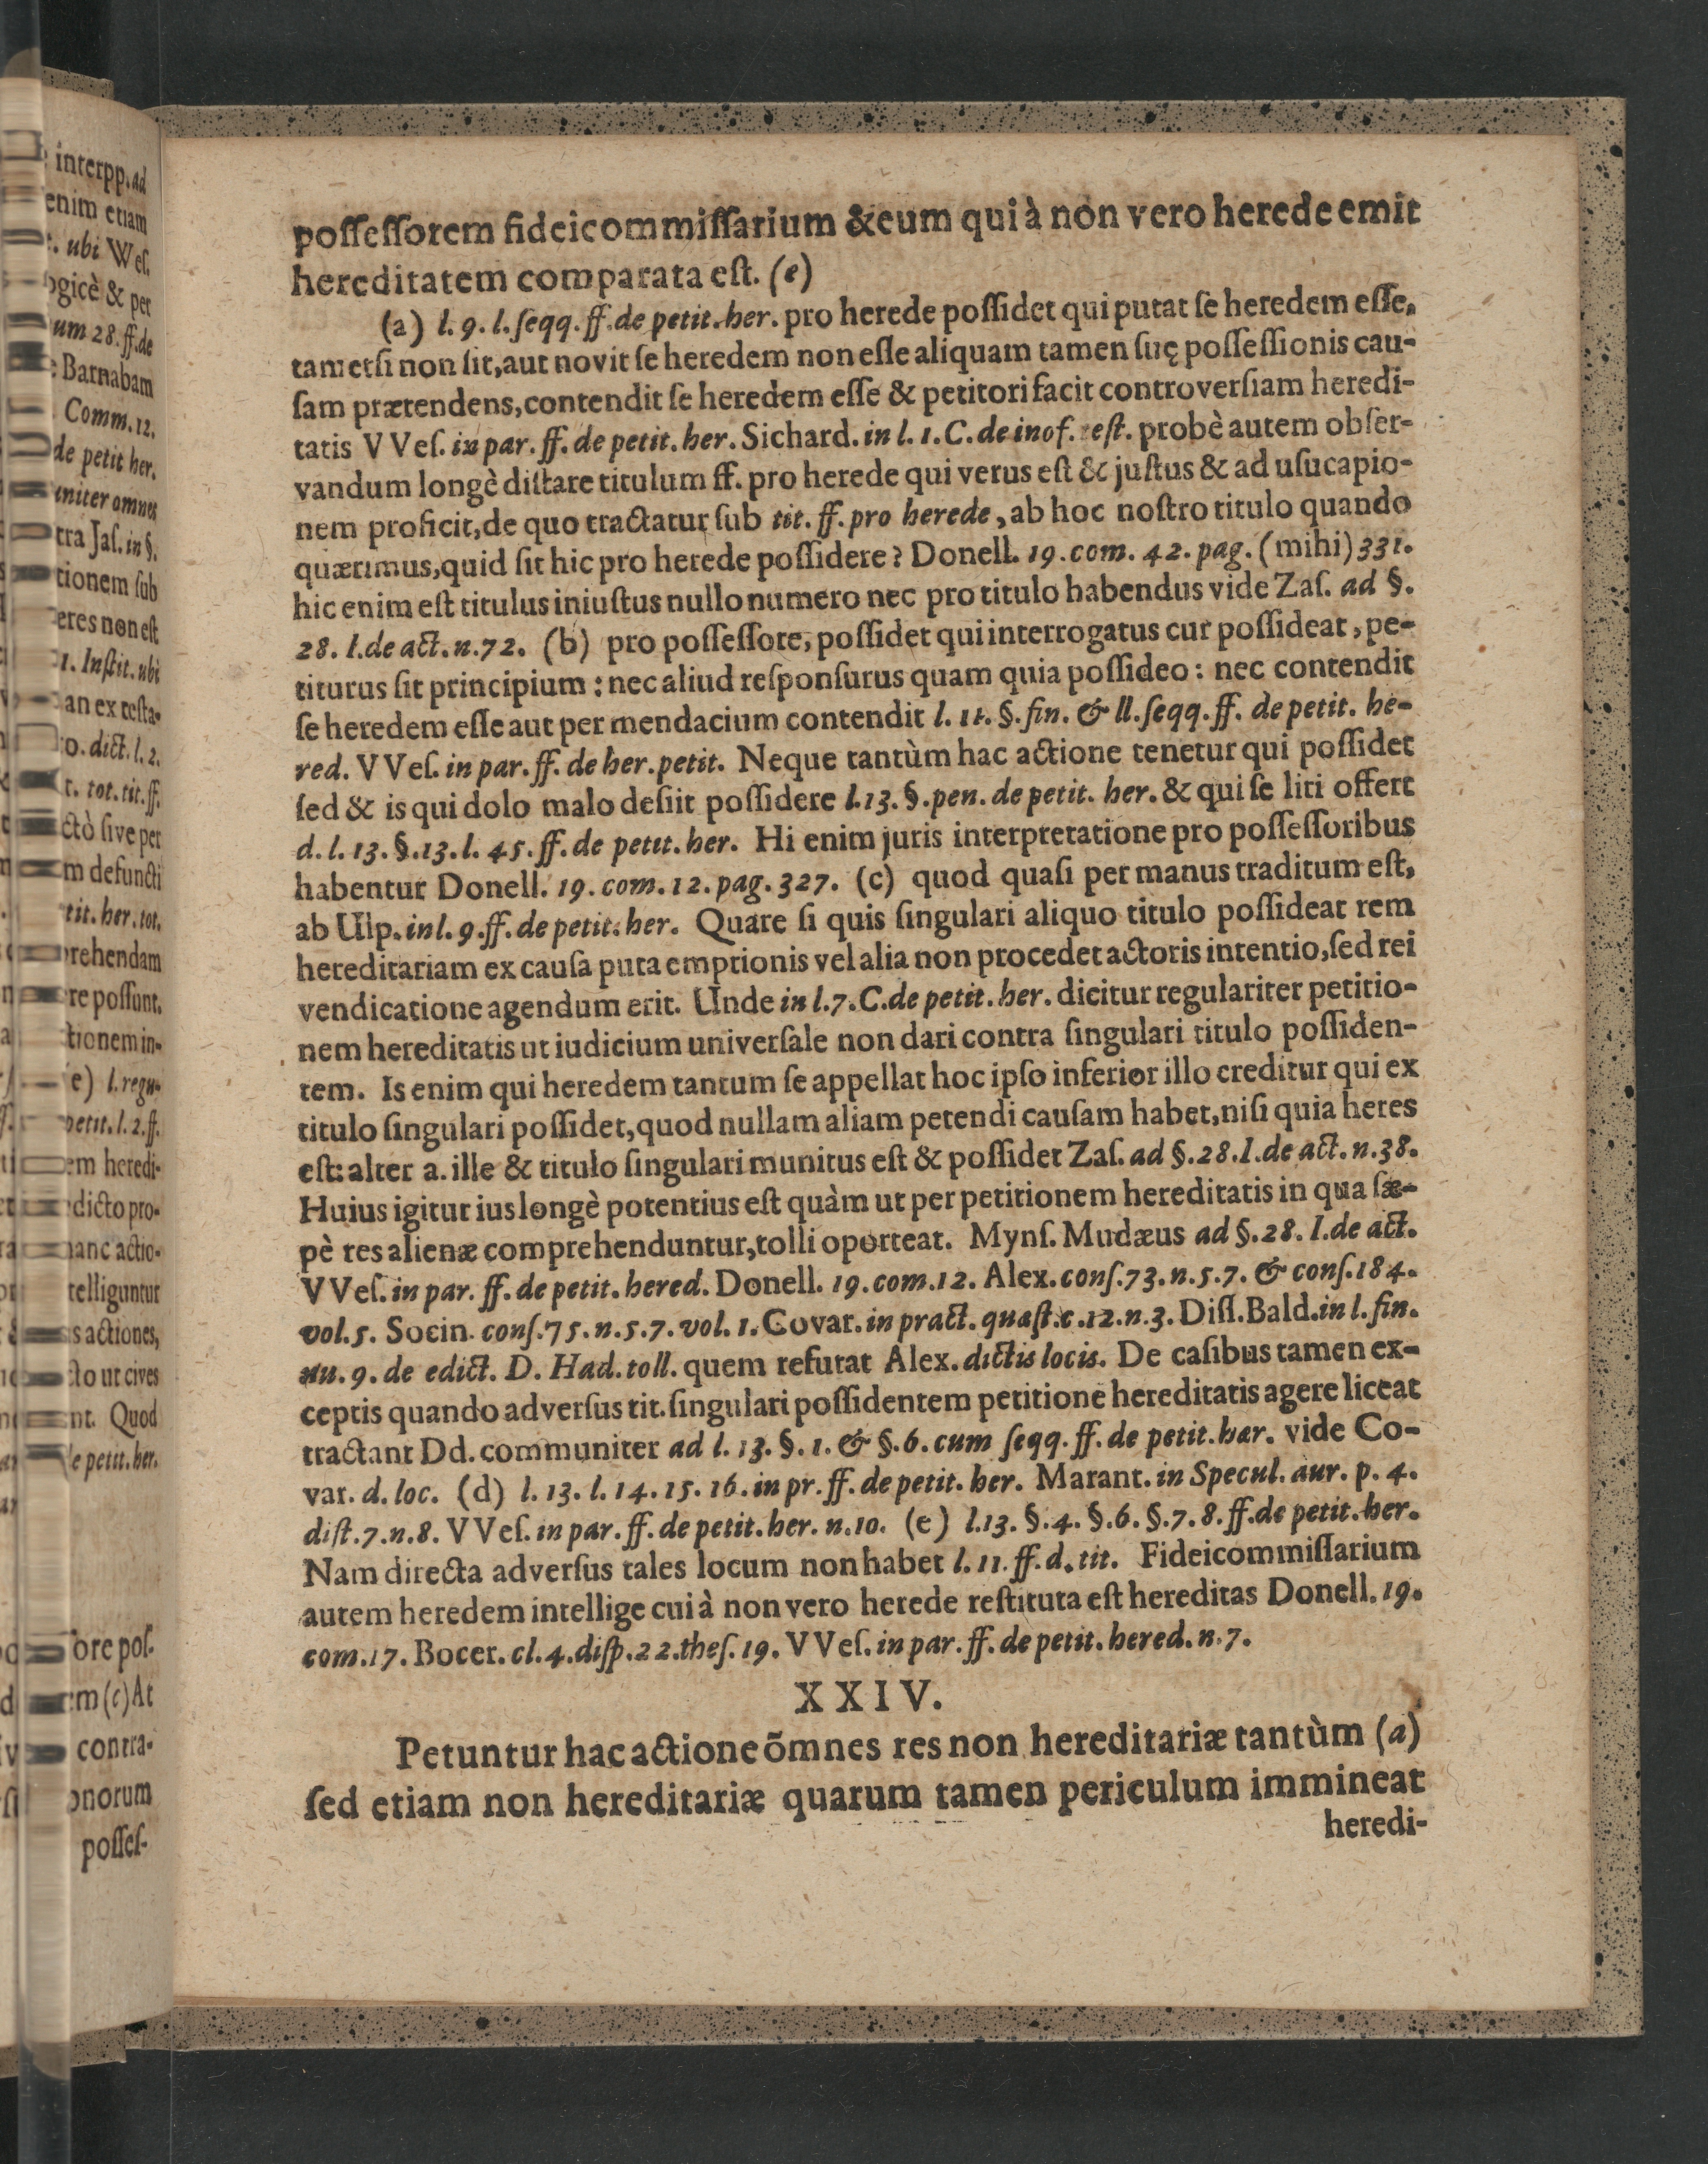 possessorem fideicommissarium &eum qui à non vero herede emit
hereditatem comparata est. (e)
(a) l. 9. l. seqq. ff. de petit. her. pro herede possidet qui putat se heredem esse,
tametsi non sit, aut novit se heredem non esse aliquam tamen suę possessionis cau-
sam prætendens, contendit se heredem esse & petitori facit controversiam heredi-
tatis VVes. in par. ff. de petit. her. Sichard. in l. 1. C. de inof. test. probè autem obser-
vandum longè distare titulum ff. pro herede qui verus est & justus & ad usucapio-
nem proficit, de quo tractatur sub tit. ff. pro herede, ab hoc nostro titulo quando
quærimus, quid sit hic pro herede possidere? Donell. 19. com. 42. pag. (mihi) 331.
hic enim est titulus iniustus nullo numero nec pro titulo habendus vide Zas. ad §.
28. I. de act. n. 72. (b) pro possessore, possidet qui interrogatus cur possideat, pe-
titurus sit principium: nec aliud responsurus quam quia possideo: nec contendit
se heredem esse aut per mendacium contendit l. 11. §. fin. & ll. seqq. ff. de petit. he-
red. VVes. in par. ff. de her. petit. Neque tantùm hac actione tenetur qui possidet
sed & is qui dolo malo desiit possidere l. 13. §. pen. de petit. her. & qui se liti offert
d. l. 13. §. 13. l. 45. ff. de petit. her. Hi enim juris interpretatione pro possessoribus
habentur Donell. 19. com. 12. pag. 327. (c) quod quasi per manus traditum est,
ab Ulp. in l. 9. ff. de petit. her. Quare si quis singulari aliquo titulo possideat rem
hereditariam ex causa puta emptionis vel alia non procedet actoris intentio, sed rei
vendicatione agendum erit. Unde in l. 7. C. de petit. her. dicitur regulariter petitio-
nem hereditatis ut iudicium universale non dari contra singulari titulo possiden-
tem. Is enim qui heredem tantum se appellat hoc ipso inferior illo creditur qui ex
titulo singulari possidet, quod nullam aliam petendi causam habet, nisi quia heres
est: alter a. ille & titulo singulari munitus est & possidet Zas. ad §. 28. I. de act. n. 38.
Huius igitur ius longè potentius est quàm ut per petitionem hereditatis in qua sæ-
pè res alienæ comprehenduntur, tolli oporteat. Myns. Mudæus ad §. 28. I. de act.
VVes. in par. ff. de petit. hered. Donell. 19. com. 12. Alex. cons. 73. n. 5. 7. & cons. 184.
vol. 5. Socin. cons. 75. n. 5. 7. vol. 1. Covar. in pract. quæst. c. 12. n. 3. Diss. Bald. in l. fin.
nu. 9. de edict. D. Had. toll. quem refutat Alex. dictis locis. De casibus tamen ex-
ceptis quando adversus tit. singulari possidentem petitione hereditatis agere liceat
tractant Dd. communiter ad l. 13. §. 1. & §. 6. cum seqq. ff. de petit. hær. vide Co-
var. d. loc. (d) l. 13. l. 14. 15. 16. in pr. ff. de petit. her. Marant. in Specul. aur. p. 4.
dist. 7. n. 8. VVes. in par. ff. de petit. her. n. 10. (e) l. 13. §. 4. §. 6. §. 7. 8. ff. de petit. her.
Nam directa adversus tales locum non habet l. 11. ff. d. tit. Fideicommissarium
autem heredem intellige cui à non vero herede restituta est hereditas Donell. 19.
com. 17. Bocer. cl. 4. disp. 22. thes. 19. VVes. in par. ff. de petit. hered. n. 7.
XXIV.
Petuntur hac actione õmnes res non hereditariæ tantùm (a)
sed etiam non hereditariæ quarum tamen periculum immineat
heredi-